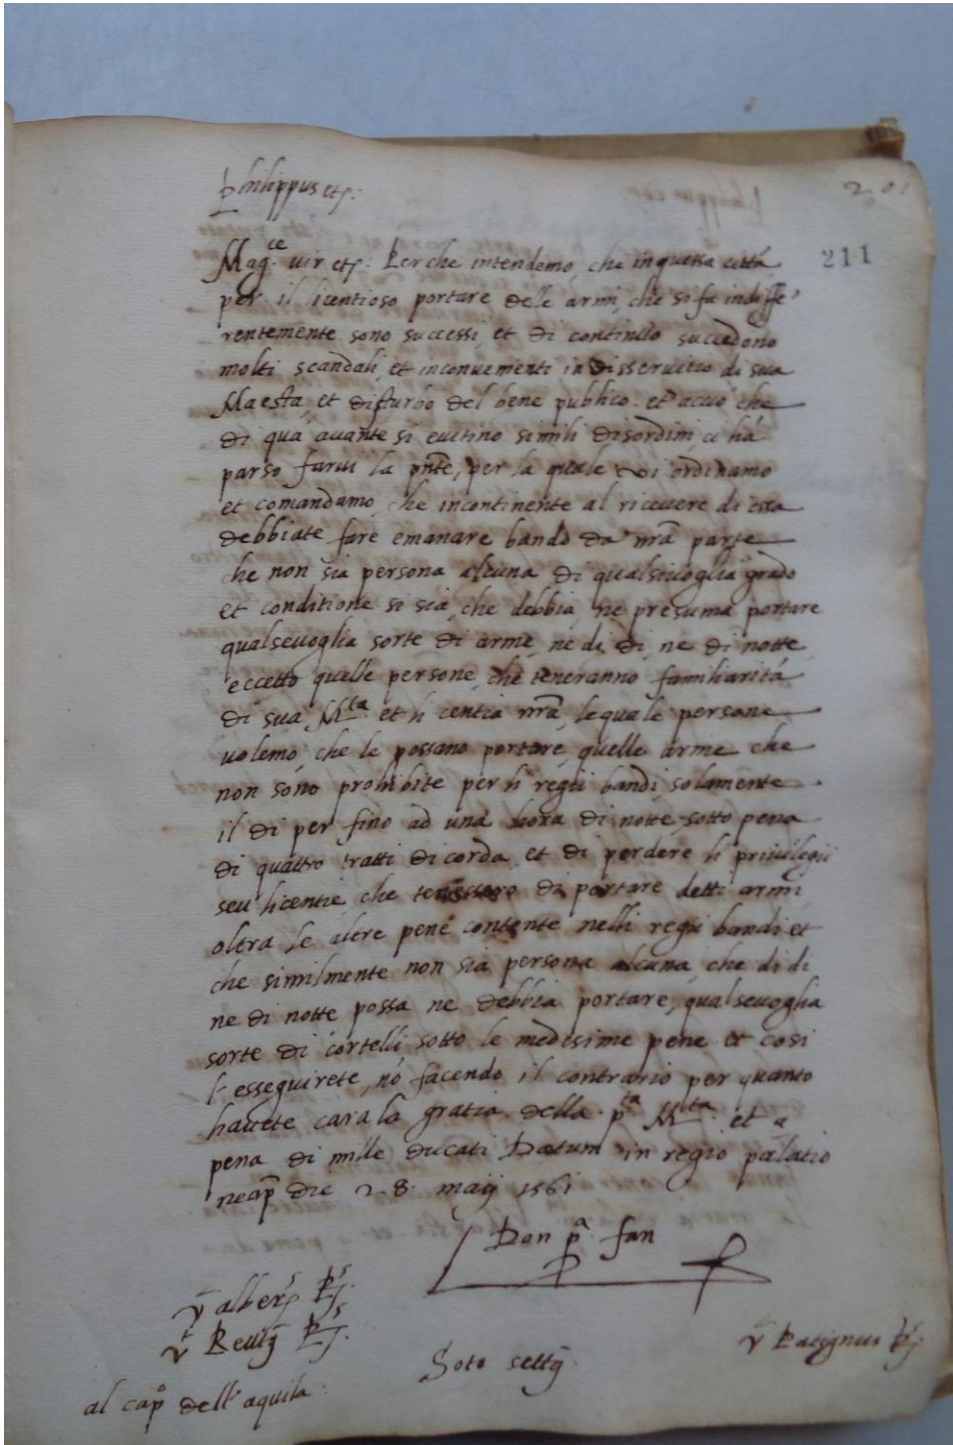 Philippus etc.
201
211
Mag.ce vir etc. Perche intendemo, che in questa città
per il licentioso portare delle armi, che si fa indiffe-
rentemente sono successi, et di continuo succedono
molti scandali, et inconvenienti in disservitio di sua
Maestà, et disturbo del bene publico. et acciò che
di quà avante si evitino simili disordini, ci hà
parso farvi la pnte, per la quale vi ordinamo
et comandamo, che incontinente al ricevere di essa
debbiate fare emanare bando da nra parte
che non sia persona alcuna di qualsivoglia grado
et conditione si sia, che debbia, ne presuma portare
qualsevoglia sorte di arme, ne de dì, ne di notte
eccetto quelle persone, che teneranno familiarità
di sua M.tà et licentia nra, le quale persone
volemo, che le possano portare, quelle arme che
non sono prohibite per li regii bandi, solamente
il dì per fino ad una hora di notte, sotto pena
di quattro tratti di corda, et di perdere li privilegii
seu licentie, che tenessero di portare detti armi
oltra le altre pene contente nelli regii bandi et
che similmente non sia persona alcuna, che di dì
ne di notte possa ne debbia portare, qualsevoglia
sorte di cortelli, sotto le medesime pene et così
l'esseguirete, nò facendo il contrario per quanto
havete cara la gratia della p.ta M.tà et a
pena di mille ducati Datum in regio palatio
neap die 28 maij 1561
Don p.a fan
v albers Rs.
v Revts Rs.
v Patignus Rs
Soto sects.
al cap.o dell'aquila.